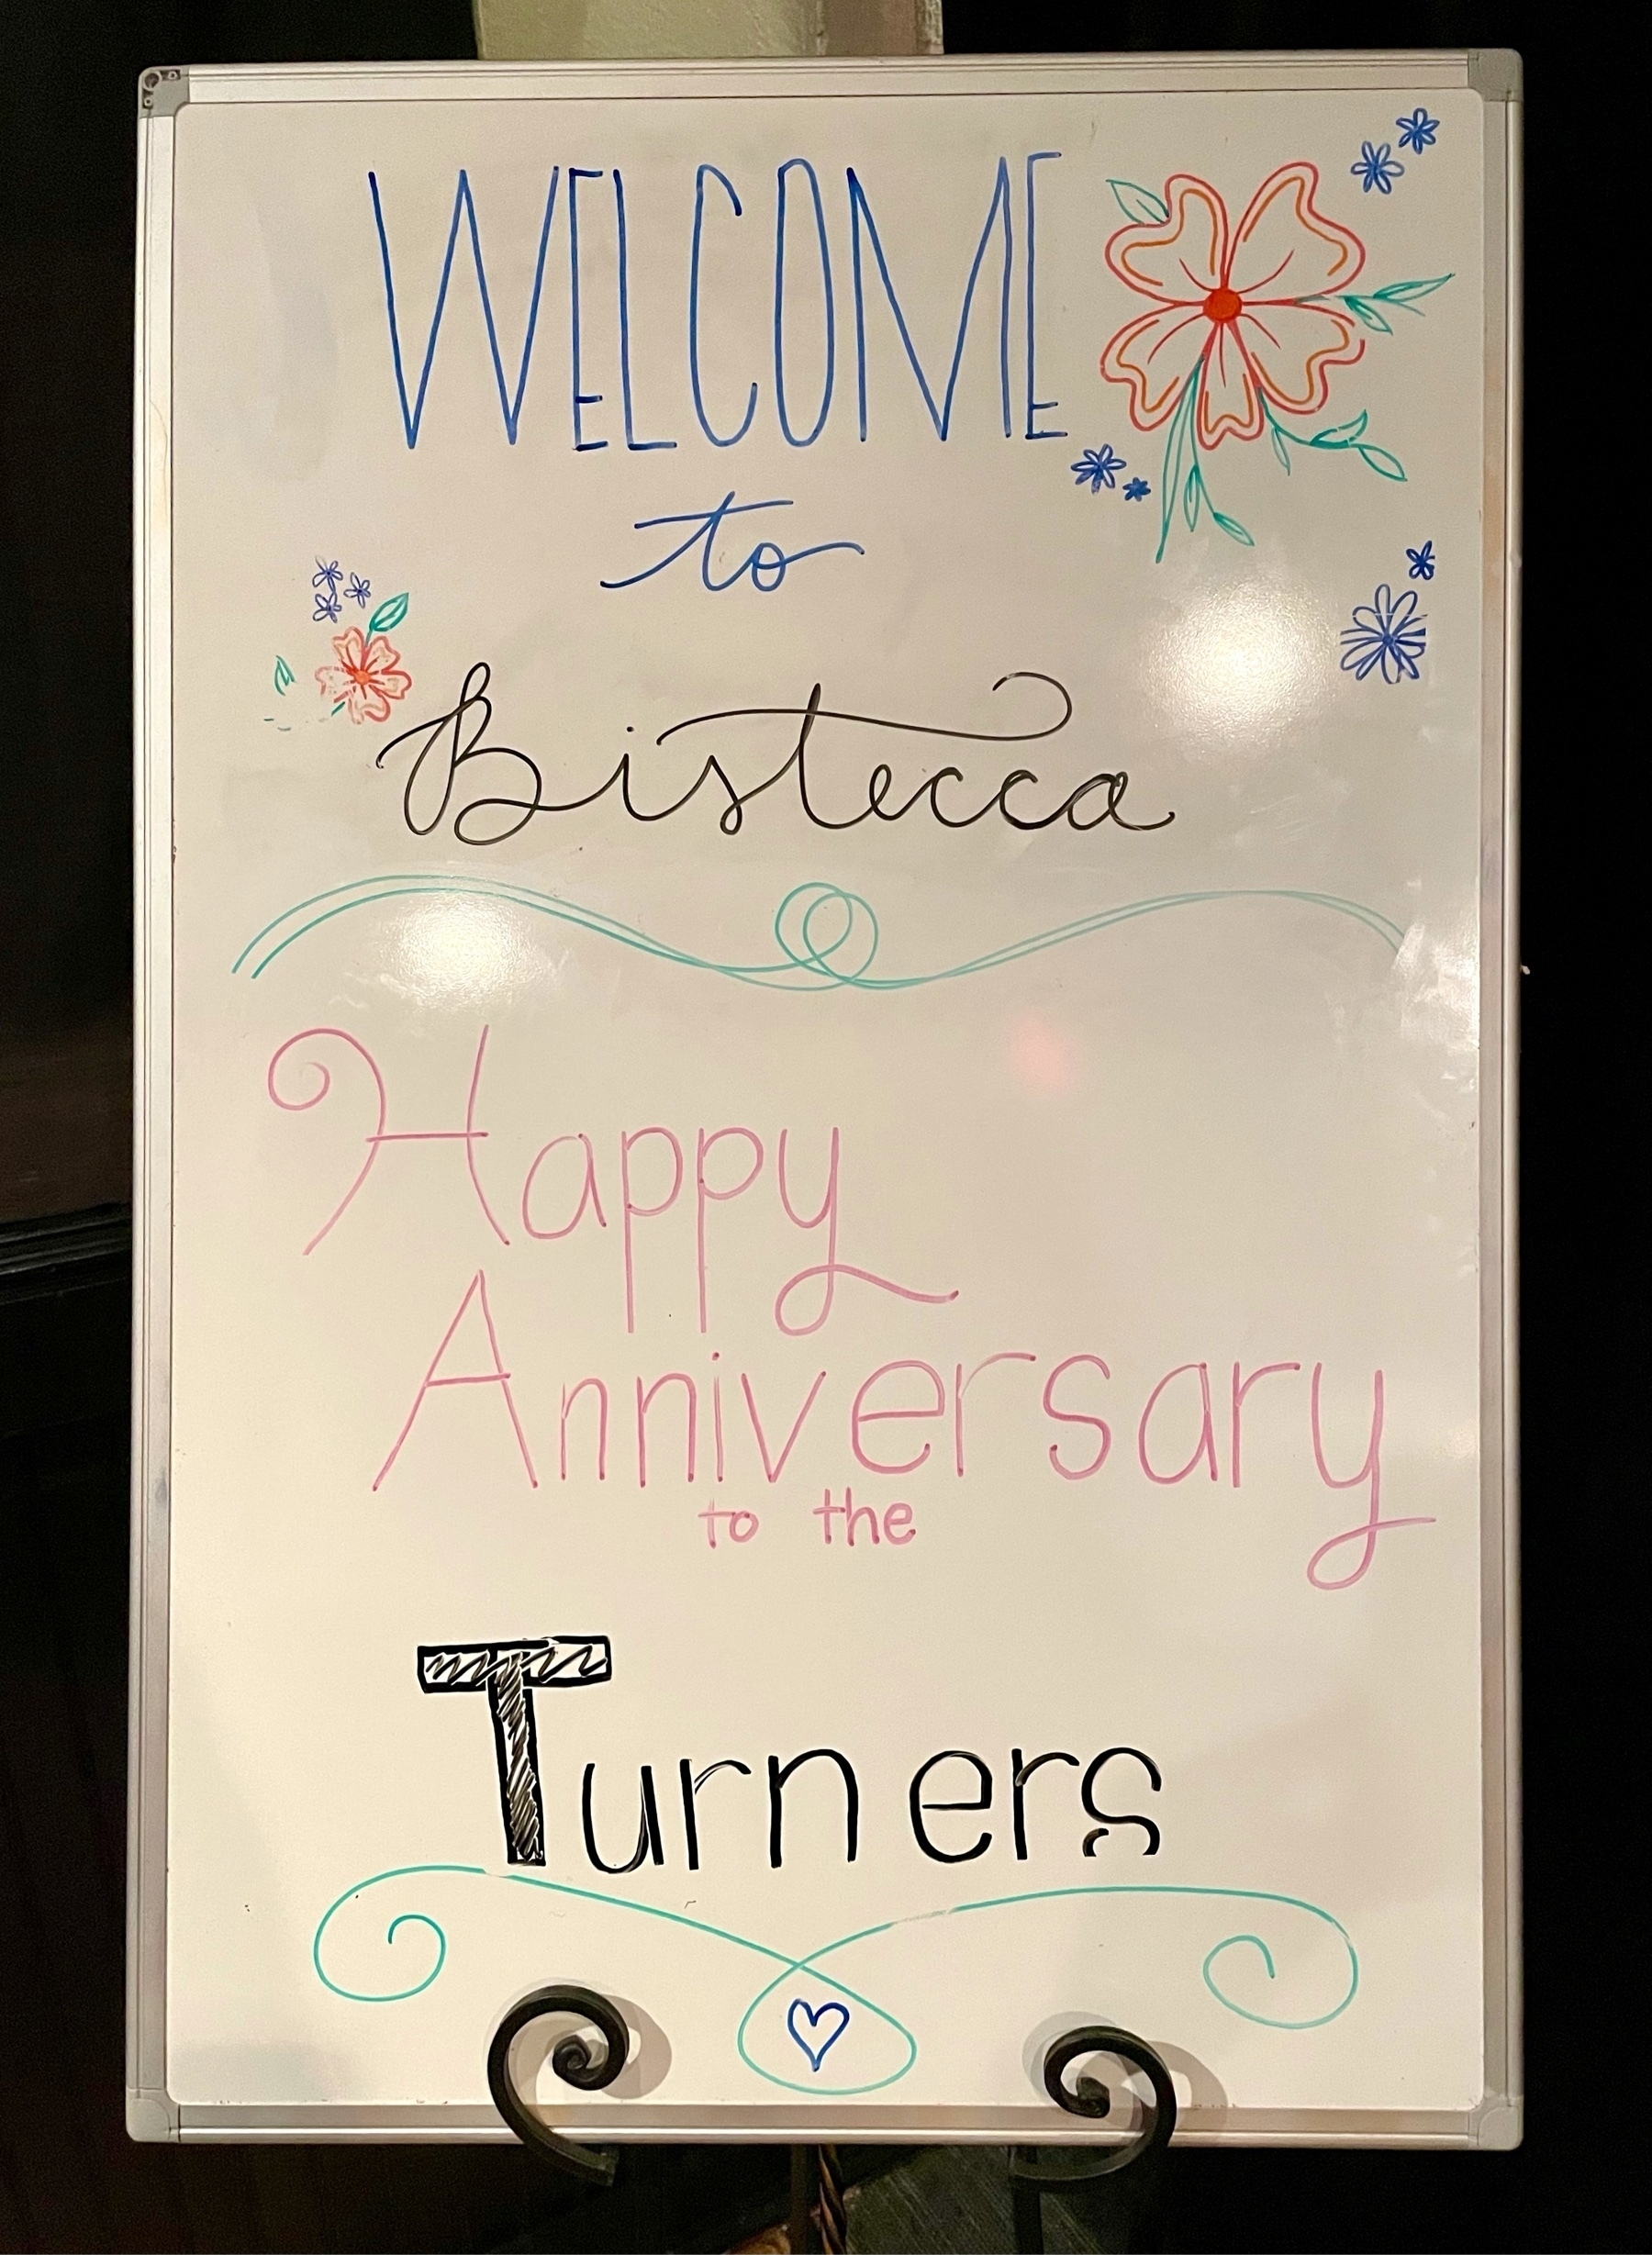 WELCOME
to
Bistecca
Happy
Anniversary
to the
Turners